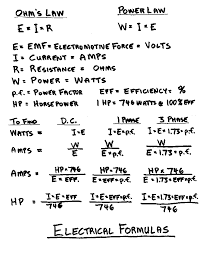 OHM'S LAW POWER LAW
E = I × R W = I × E
E = EMF = ELECTROMOTIVE FORCE = VOLTS
I = CURRENT = AMPS
R = RESISTANCE = OHMS
W = POWER = WATTS
p.f. = POWER FACTOR EFF = EFFICIENCY = %
HP = HORSE POWER 1 HP = 746 WATTS @ 100% EFF
TO FIND D.C. 1 PHASE 3 PHASE
WATTS = I×E I×E×p.f. I×E×1.73×p.f.
AMPS = W/E W/E×p.f. W/E×1.73×p.f.
AMPS = HP×746/E×EFF. HP×746/E×EFF×p.f. HP×746/E×1.73×EFF×p.f.
HP = I×E×EFF/746 I×E×EFF×p.f./746 I×E×1.73×EFF×p.f./746
ELECTRICAL FORMULAS